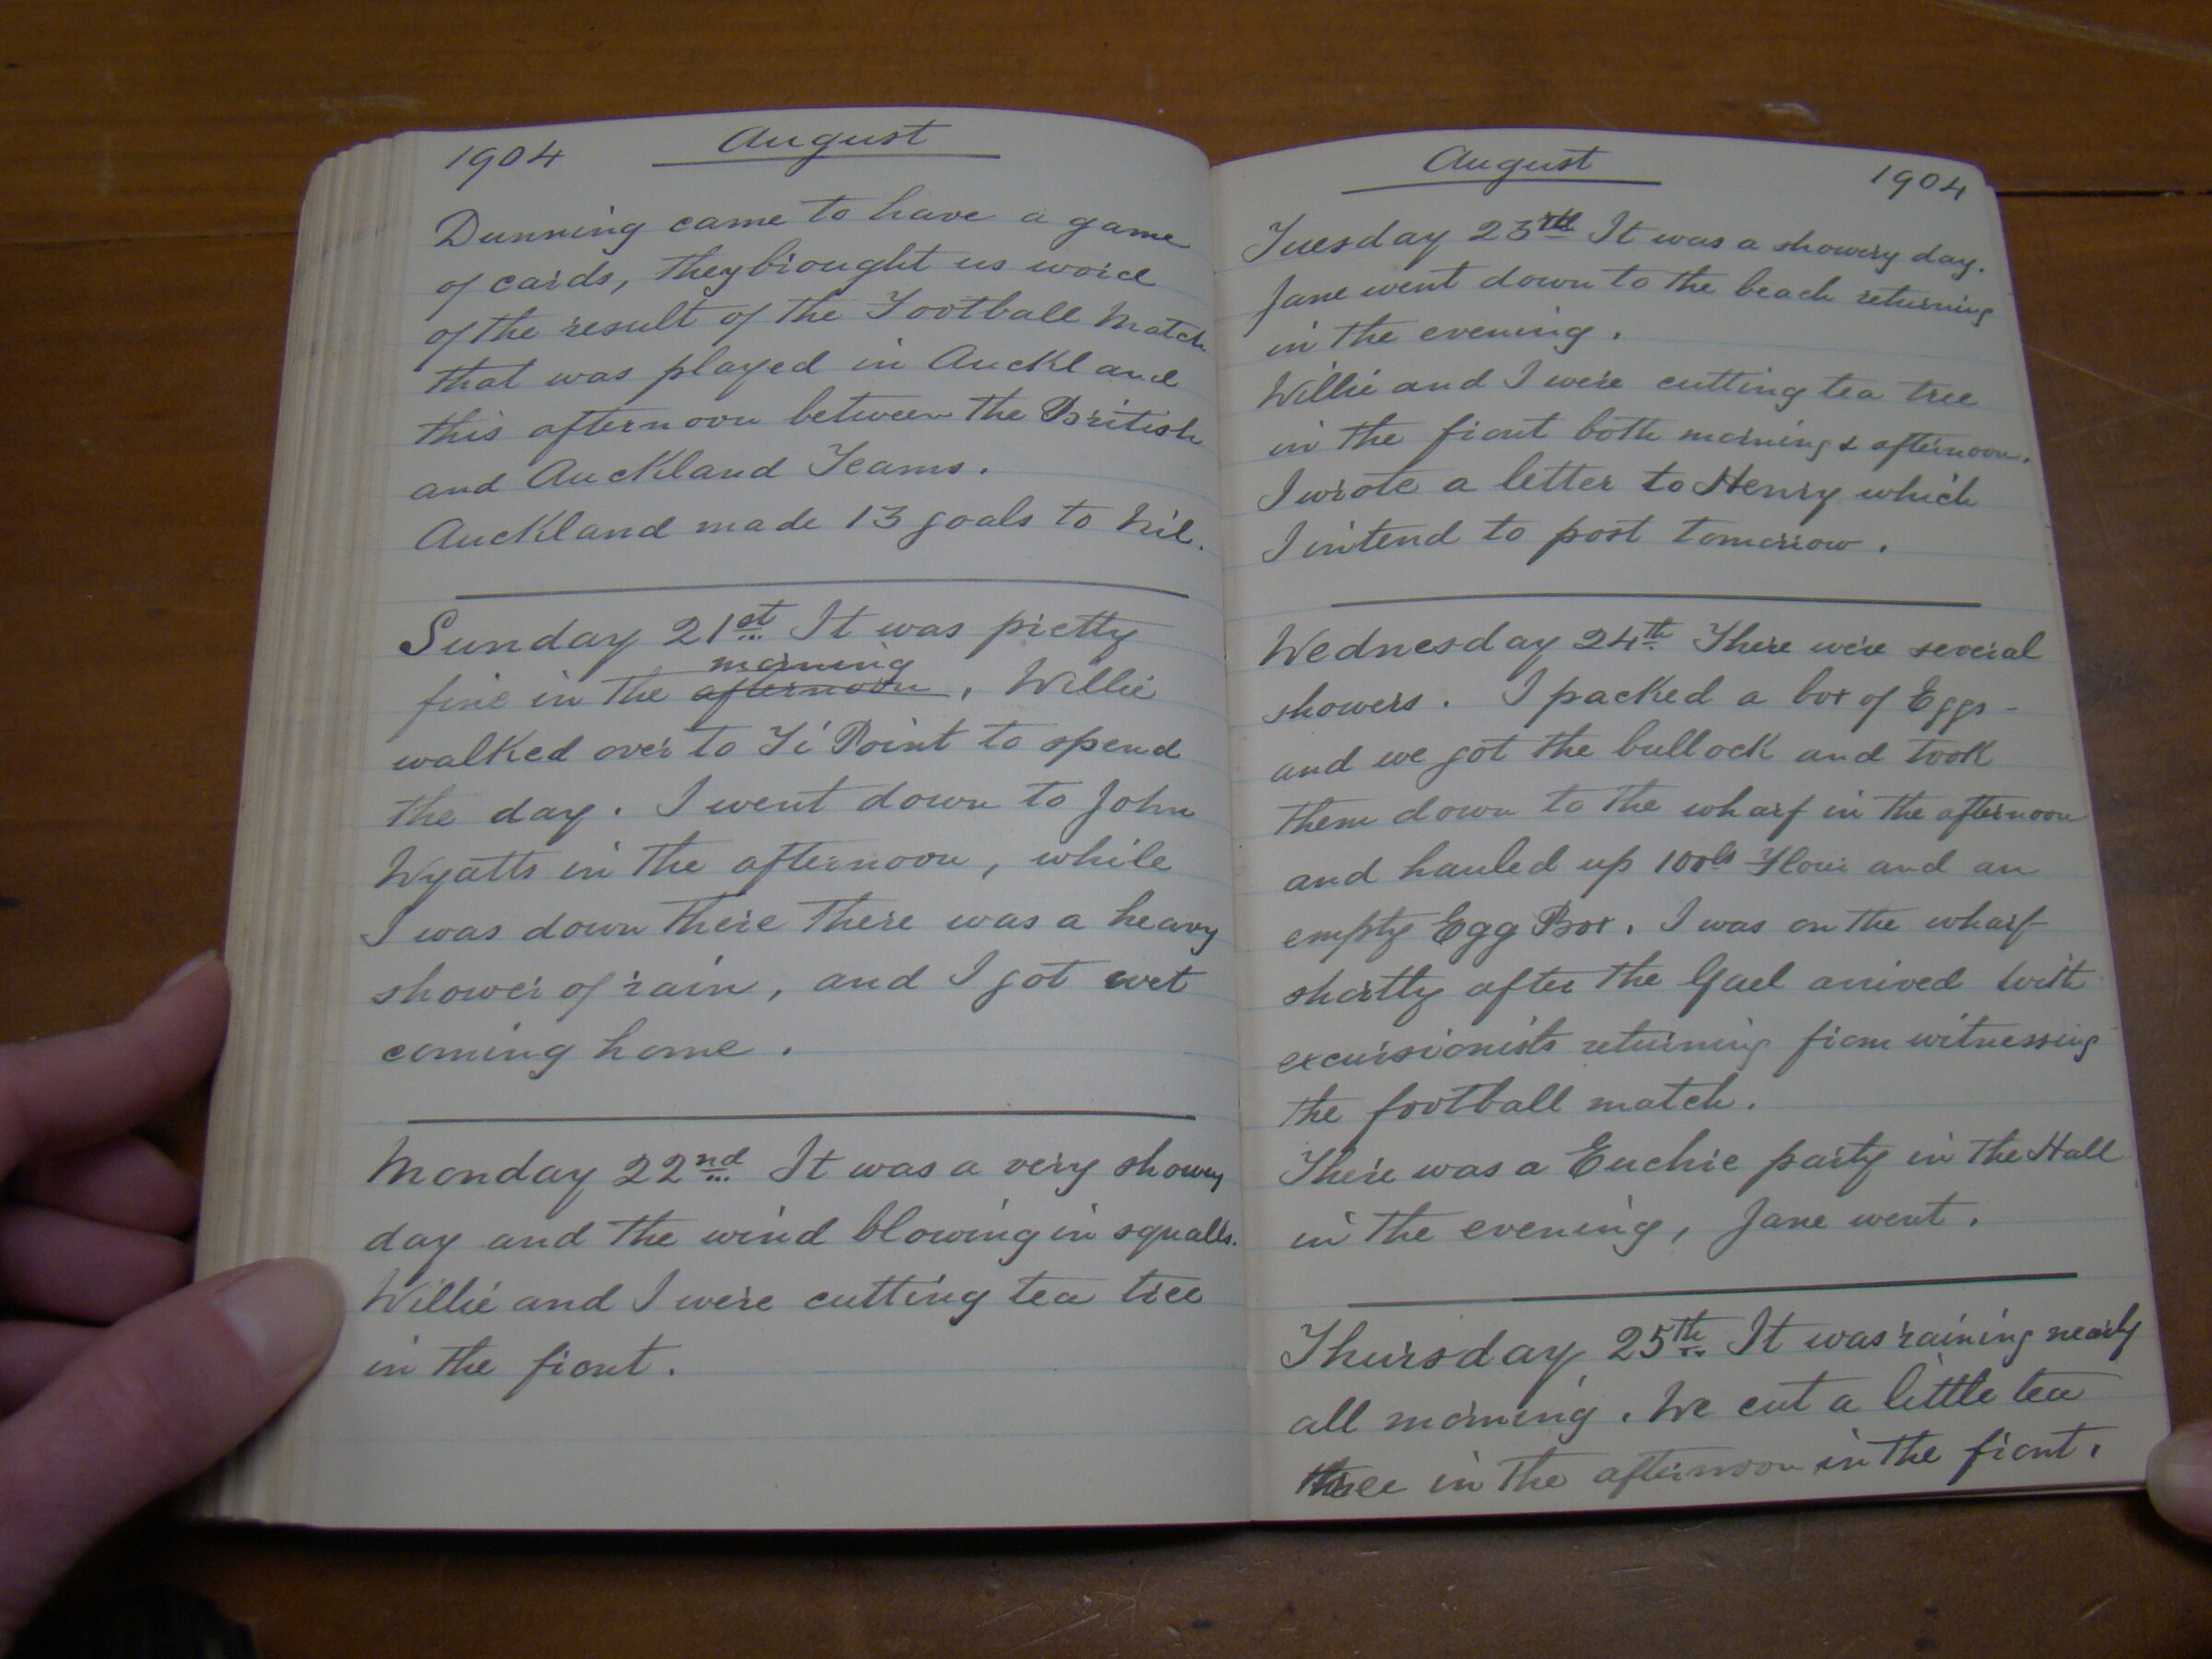 1904 August
Dunning came to have a game
of cards, they brought us word
of the result of the Football Match
that was played in Auckland
this afternoon between the British
and Auckland Teams.
Auckland made 13 goals to Nil.
Sunday 21st It was pretty
morning
fine in the afternoon, Willie
walked over to Ti Point to spend
the day. I went down to John
Wyatts in the afternoon, while
I was down there there was a heavy
shower of rain, and I got wet
coming home.
Monday 22nd It was a very showery
day and the wind blowing in squalls.
Willie and I were cutting tea tree
in the front.
August 1904
Tuesday 23rd It was a showery day.
Jane went down to the beach returning
in the evening.
Willie and I were cutting tea tree
in the front both morning & afternoon.
I wrote a letter to Henry which
I intend to post tomorrow.
Wednesday 24th There were several
showers. I packed a box of Eggs -
and we got the bullock and took
them down to the wharf in the afternoon
and hauled up 100lb Flour and an
empty Egg Box. I was on the wharf
shortly after the Gael arrived with
excursionists returning from witnessing
the football match.
There was a Euchre party in the Hall
in the evening, Jane went.
Thursday 25th It was raining nearly
all morning. We cut a little tea
tree in the afternoon in the front.